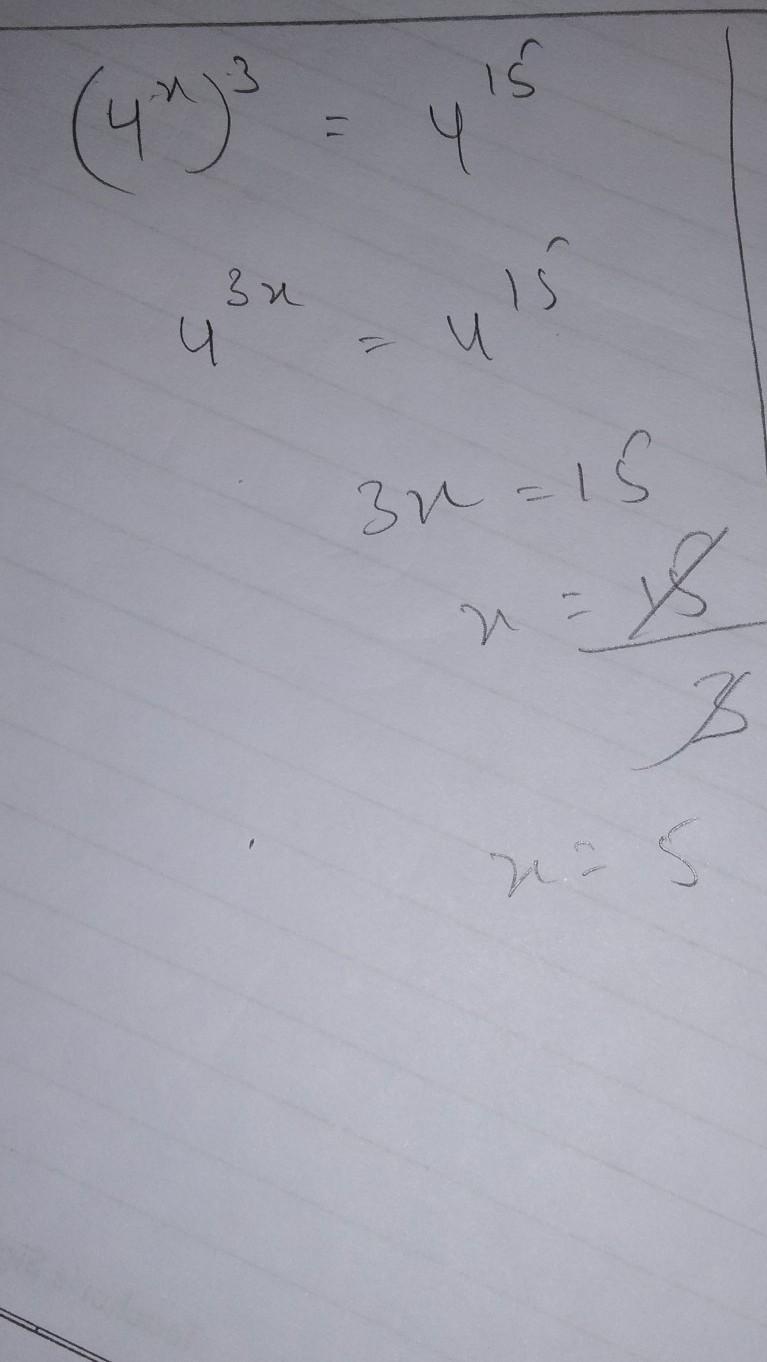 (4^x)^3 = 4^15
4^3x = 4^15
3x = 15
x = 15/3
x = 5